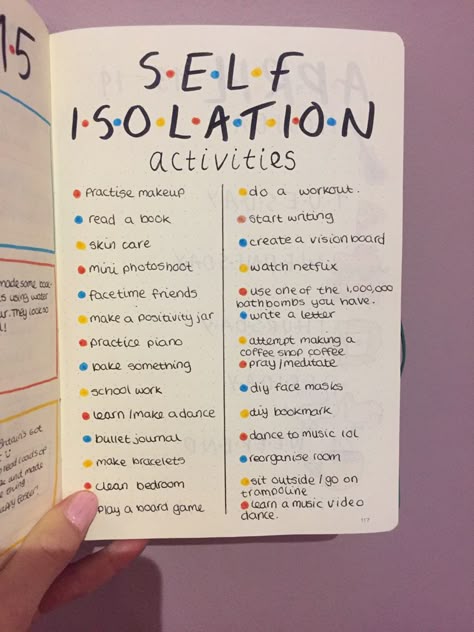 1.5
made some
as using water
ur. They look so
!
Britain's Got
and made
S•E•L•F
I•S•O•L•A•T•I•O•N
activities
Practise makeup
read a book
skin care
mini photoshoot
facetime friends
make a positivity jar
practice piano
bake something
school work
learn/make a dance
bullet journal
make bracelets
clean bedroom
play a board game
do a workout.
start writing
create a vision board
watch netflix
use one of the 1,000,000
bathbombs you have.
write a letter
attempt making a
coffee shop coffee
pray/meditate
diy face masks
diy bookmark
dance to music lol
reorganise room
sit outside / go on
trampoline
learn a music video
dance.
117